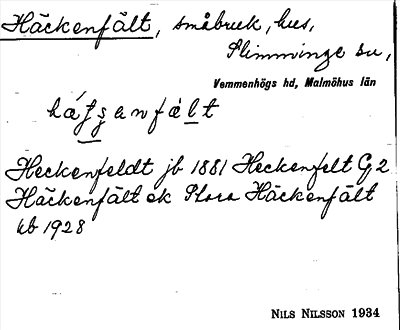 Häckenfält, småbruk, hus,
Slimminge sn,
Vemmenhögs hd, Malmöhus län
Heckenfeldt jb 1881 Heckenfelt G2
Häckenfält ek Stora Häckenfält
kb 1928
NILS NILSSON 1934